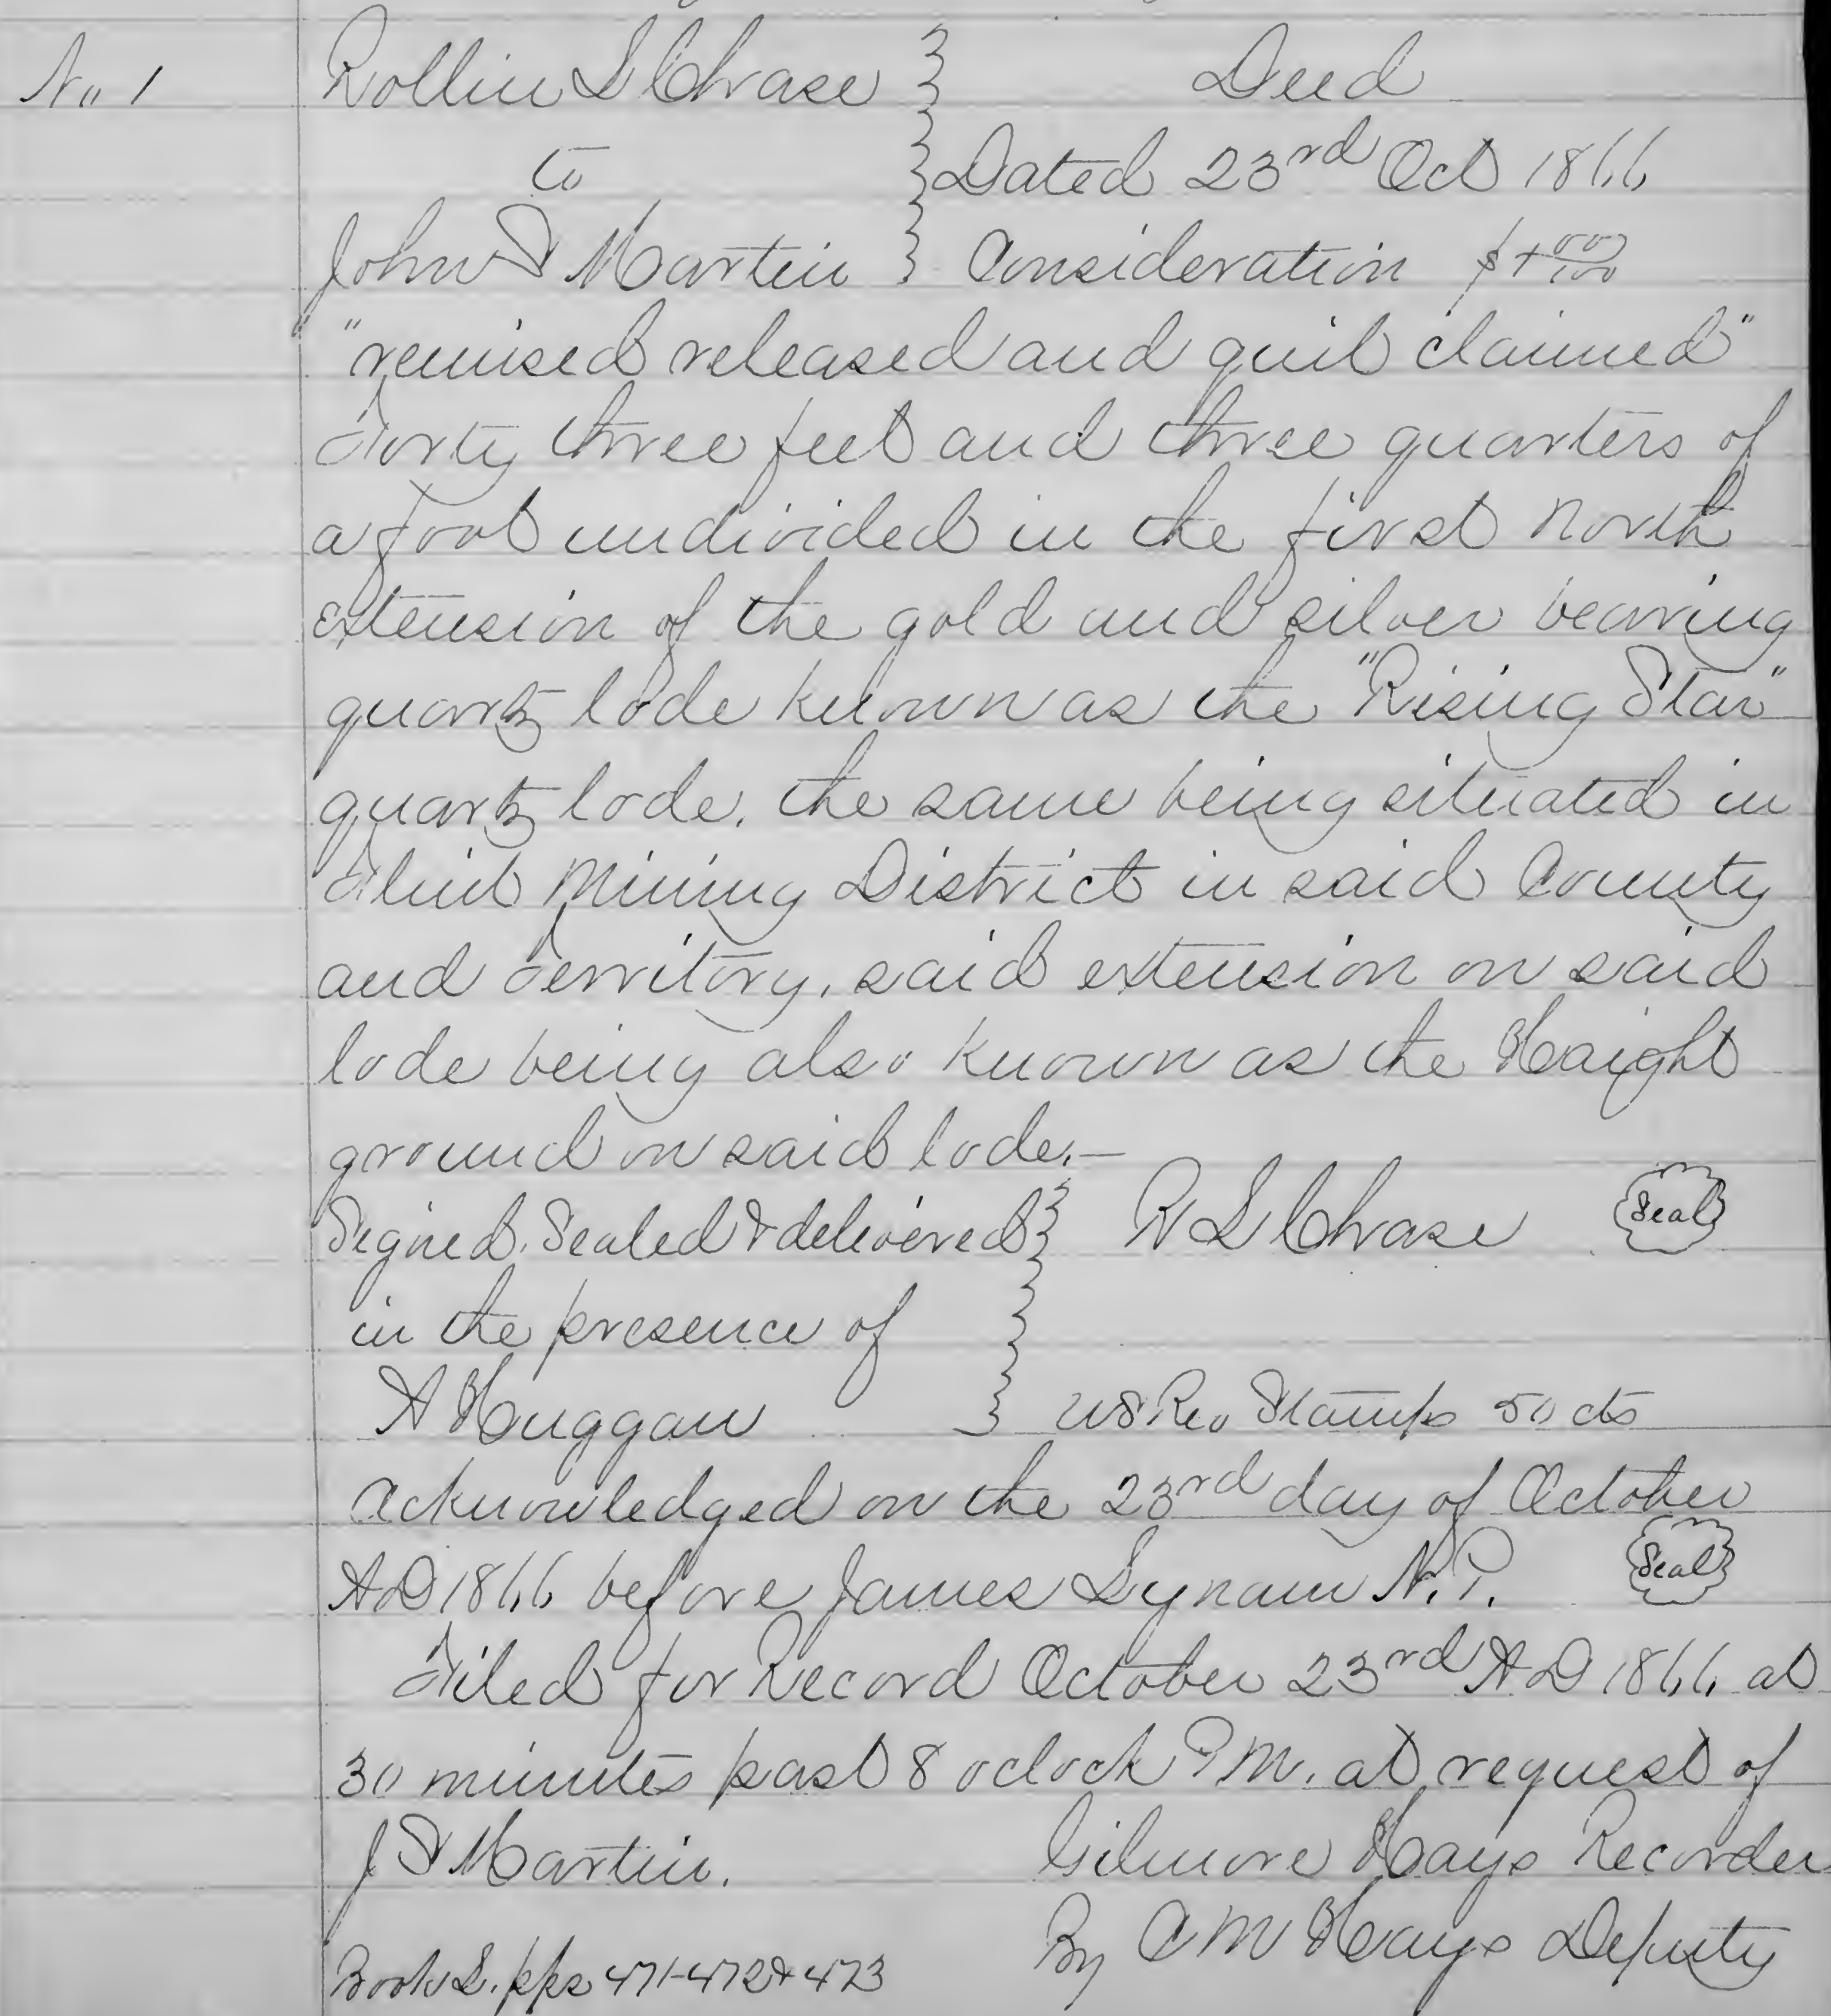 No 1 Rollin S Chase } Deed
to } Dated 23rd Oct 1866
John S Martin } Consideration $1 00/100
"remised released and quit claimed"
Forty three feet and three quarters of
a foot undivided in the first North
extension of the gold and silver bearing
quartz lode known as the "Rising Star"
quartz lode, the same being situated in
Flint Mining District in said County
and Territory, said extension on said
lode being also known as the Haight
ground on said lode.—
Signed, Sealed & delivered } R S Chase Seal
in the presence of }
A Huggan } US Rev Stamps 50 cts
Acknowledged on the 23rd day of October
AD 1866 before James Lynam N.P. Seal
Filed for Record October 23rd AD 1866 at
30 minutes past 8 oclock PM. at request of
J S Martin. Gilmore Hays Recorder
By C M Hays Deputy
Book S. pps 471-472 & 473